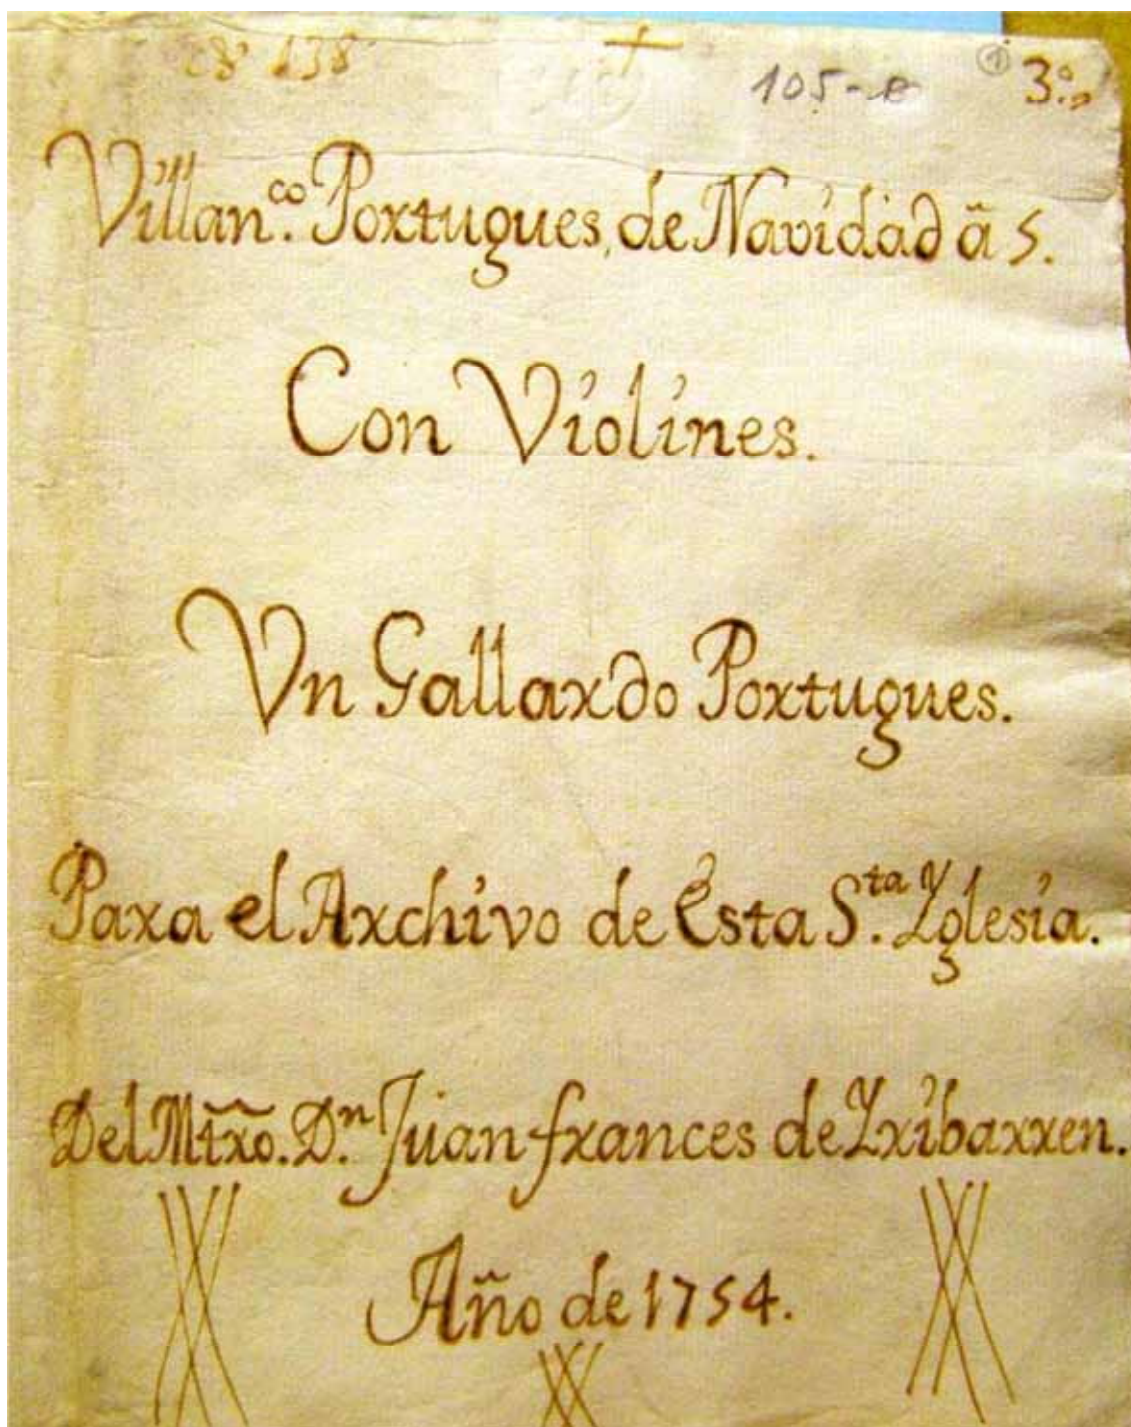 138 105-e 1 3º
Villan.co Portugues, de Navidad ã 5.
Con Violines.
Vn Gallardo Portugues.
Para el Archivo de Esta S.ta Yglesia.
Del Mtr̃o. D.n Juan frances de Yribarren.
Año de 1754.